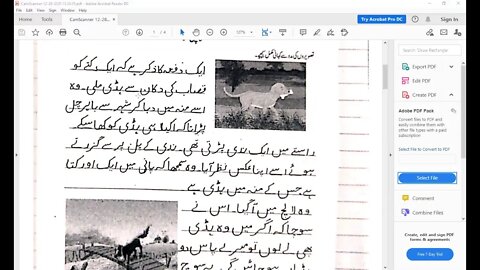 CamScanner 12-28-2020
Home
Tools
Try Acrobat Pro DC
Sign In
تصویروں کی مدد سے کہانی لکھیے۔
ایک دفعہ کا ذکر ہے کہ ایک کتے کو
قصاب کی دکان سے ہڈی ملی۔ وہ
اسے منہ میں دبا کر شہر سے باہر چل
پڑا تاکہ اکیلا ہی ہڈی کو کھا سکے
راستے میں ایک ندی پڑتی تھی۔ ندی کے پل پر سے گزرتے
ہوئے اسے اپنا عکس نظر آیا۔ وہ سمجھا کہ پانی میں ایک اور کتا
ہے جس کے منہ میں ہڈی ہے
وہ لالچ میں آ گیا۔ اس نے
سوچا کہ اگر میں وہ ہڈی
بھی لے لوں تو میرے پاس دو
ہڈیاں ہو جائیں گی۔ یہ سوچ
Search 'Draw Rectangle'
Export PDF
Edit PDF
Create PDF
Adobe PDF Pack
Convert files to PDF and
easily combine them with
other file types with a paid
subscription
Select File to Convert to PDF
Select File
Comment
Combine Files
Create, edit and sign PDF
forms & agreements
Free 7-Day Trial